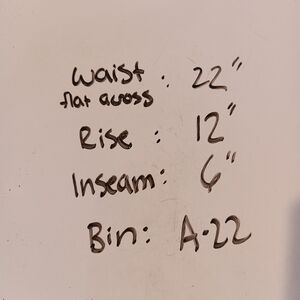 Waist : 22"
flat across
Rise : 12"
Inseam: 6"
Bin: A-22